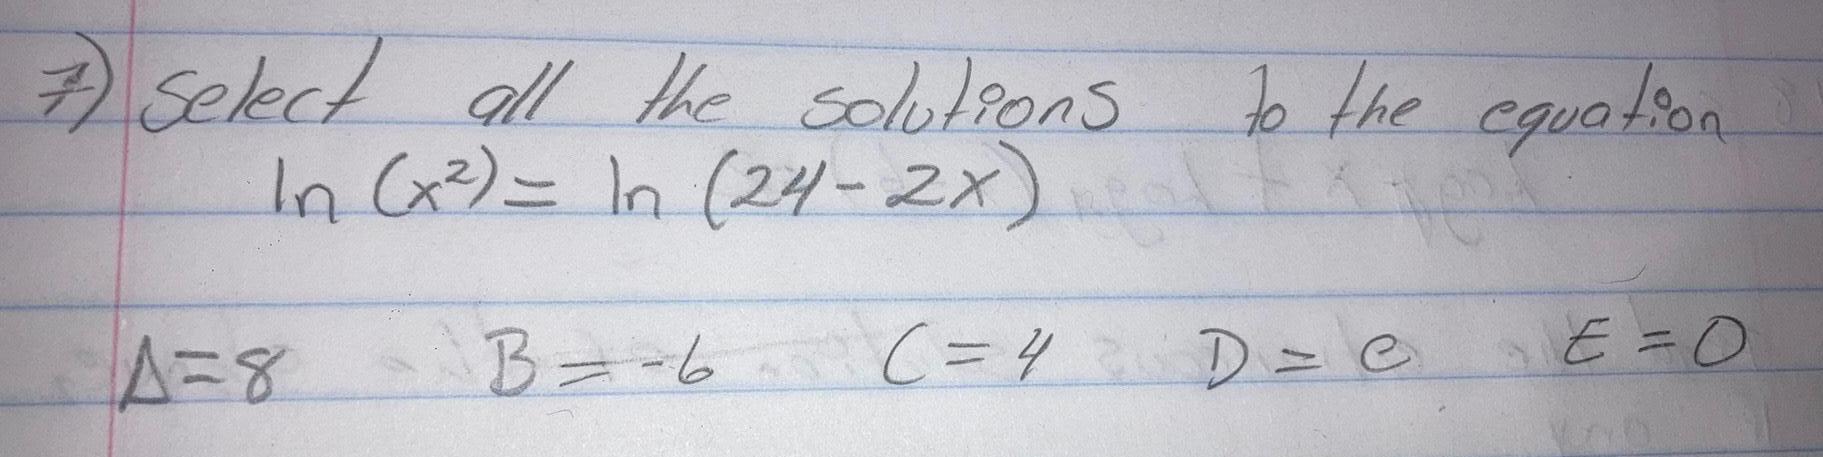 7) Select all the solutions to the equation
ln (x²) = ln (24 - 2x)
A = 8 B = -6 C = 4 D = e E = 0